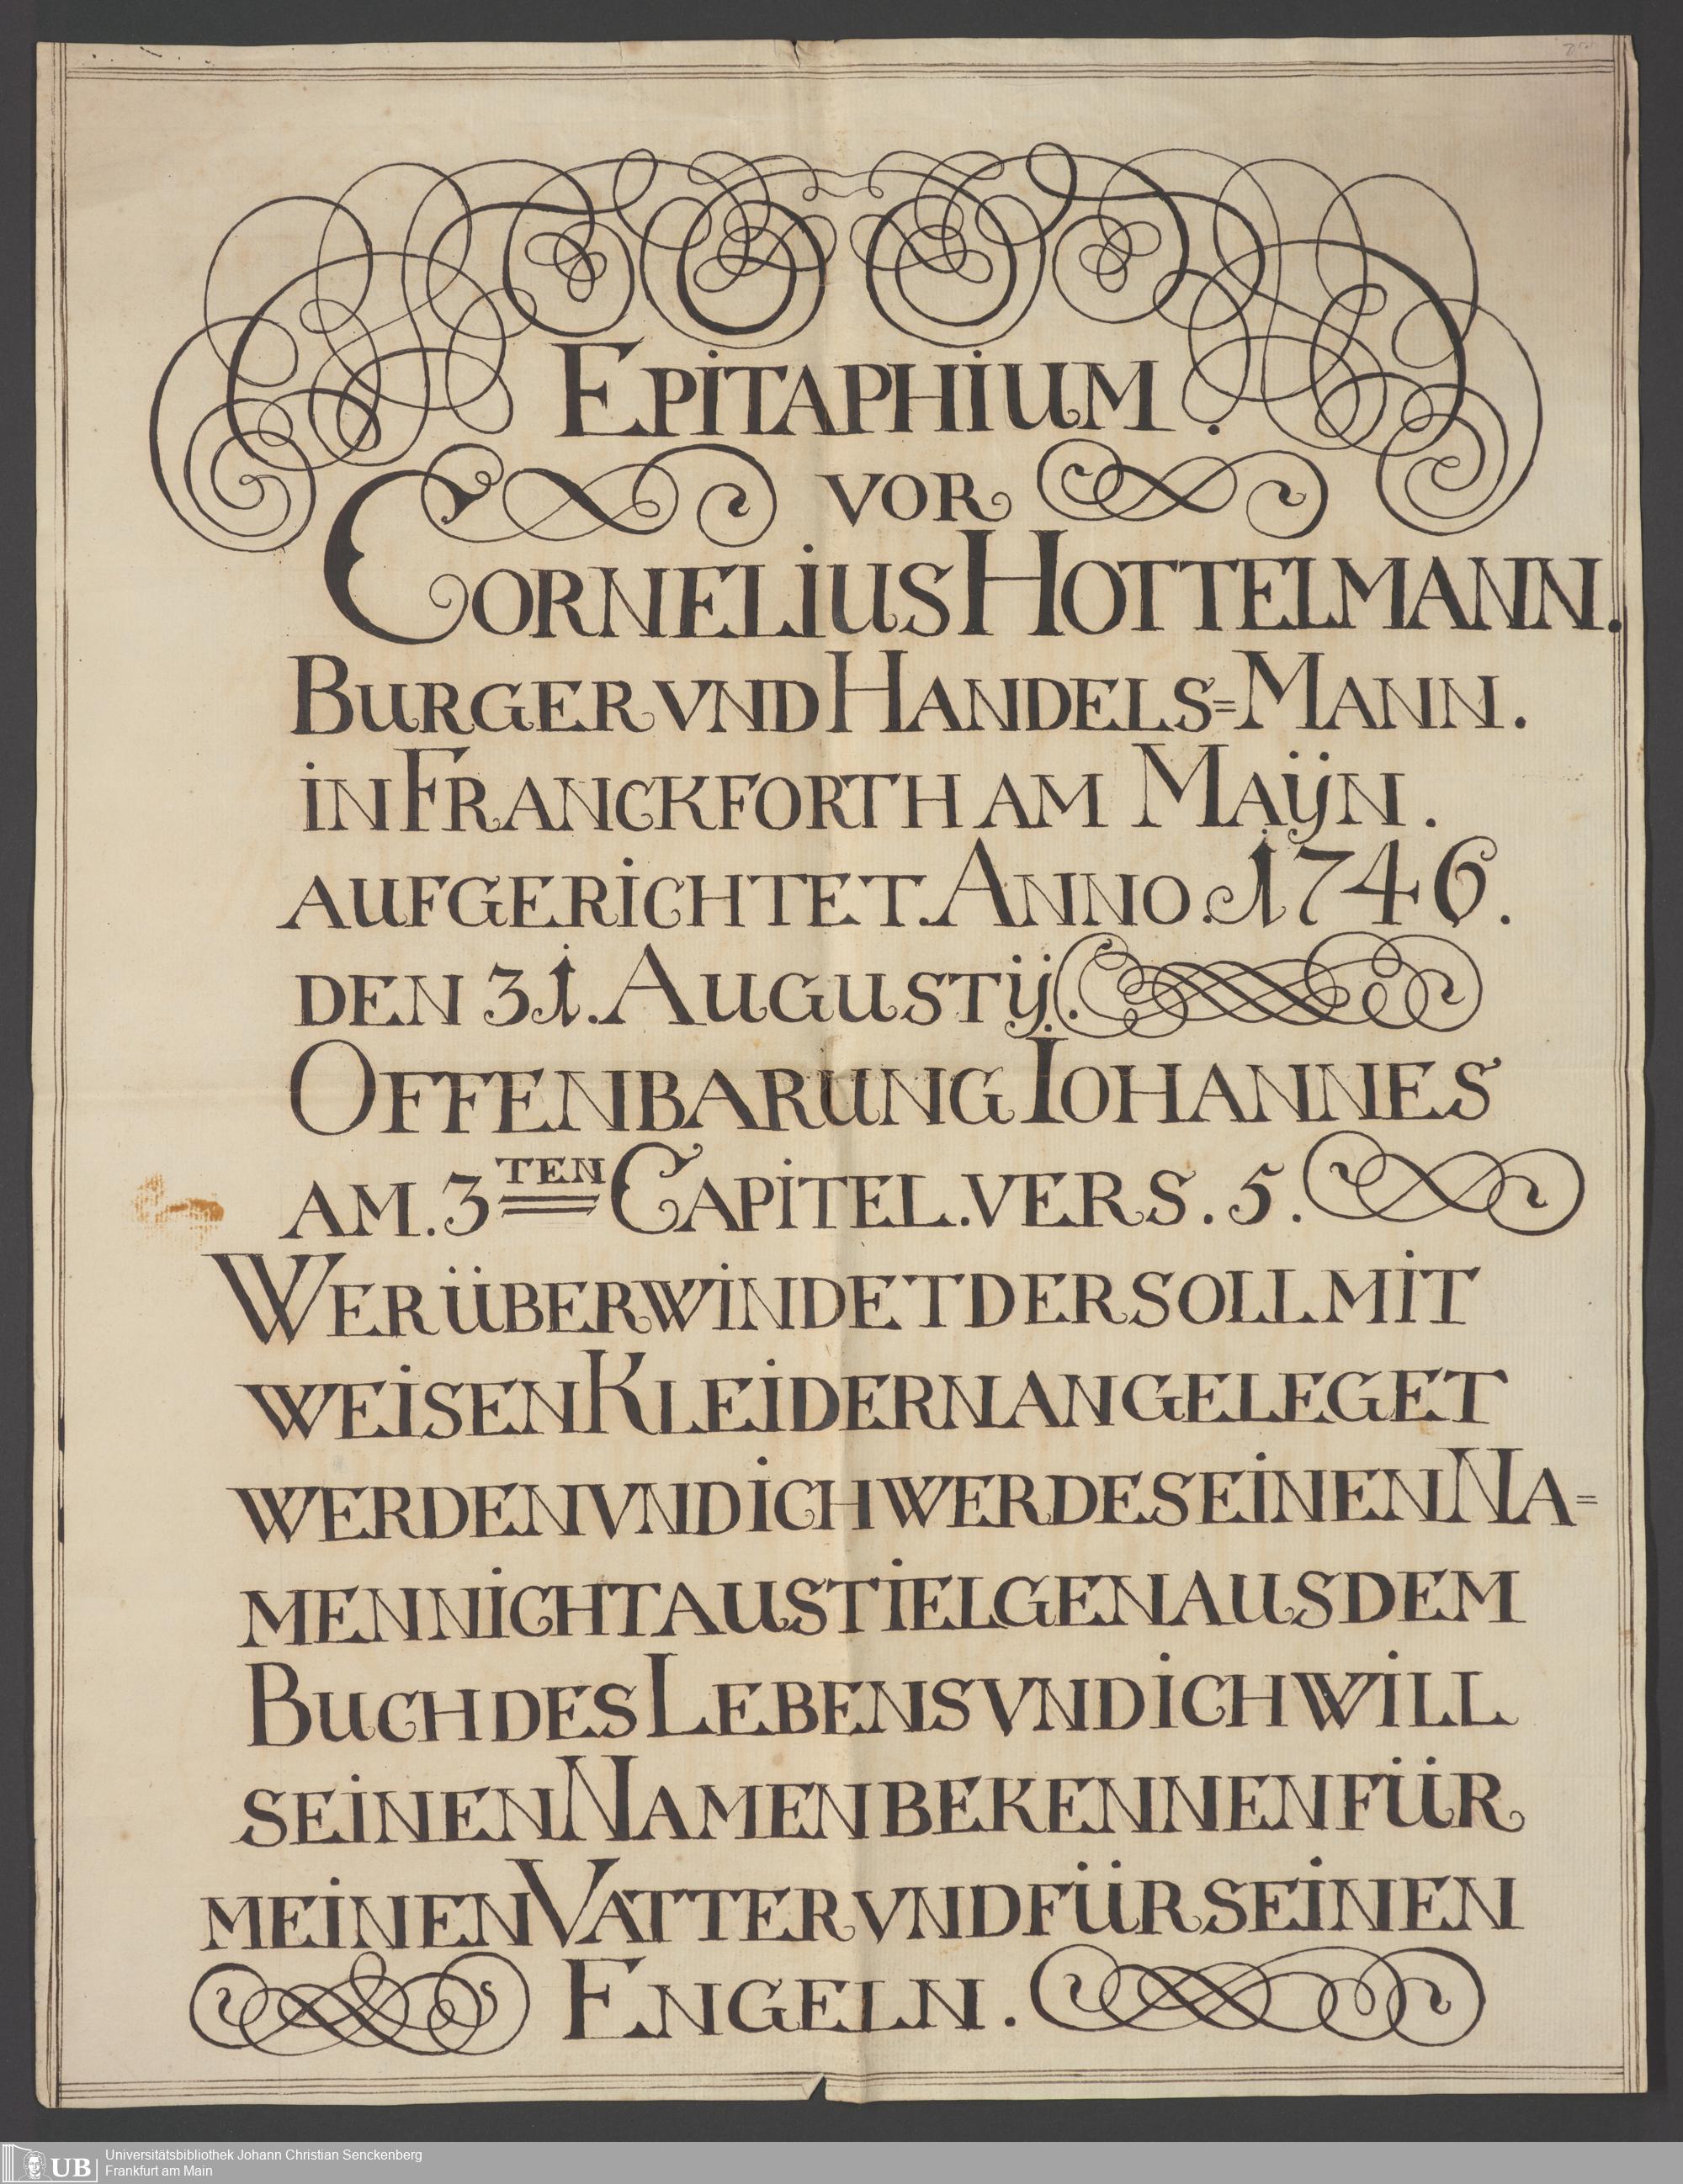 EPITAPHIUM.
VOR
CORNELIUS HOTTELMANN.
BURGER VND HANDELS=MANN.
IN FRANCKFORTH AM MAŸN.
AUFGERICHTET. ANNO. 1746.
DEN 31. AUGUSTŸ.
OFFENBARUNG IOHANNES
AM. 3TEN CAPITEL. VERS. 5.
WER ÜBERWINDET DER SOLL MIT
WEISEN KLEIDERN ANGELEGET
WERDEN VND ICH WERDE SEINEN NA=
MEN NICHT AUSTIELGEN AUS DEM
BUCH DES LEBENS VND ICH WILL
SEINEN NAMEN BEKENNEN FÜR
MEINEN VATTER VND FÜR SEINEN
ENGELN.
UB
Universitätsbibliothek Johann Christian Senckenberg
Frankfurt am Main